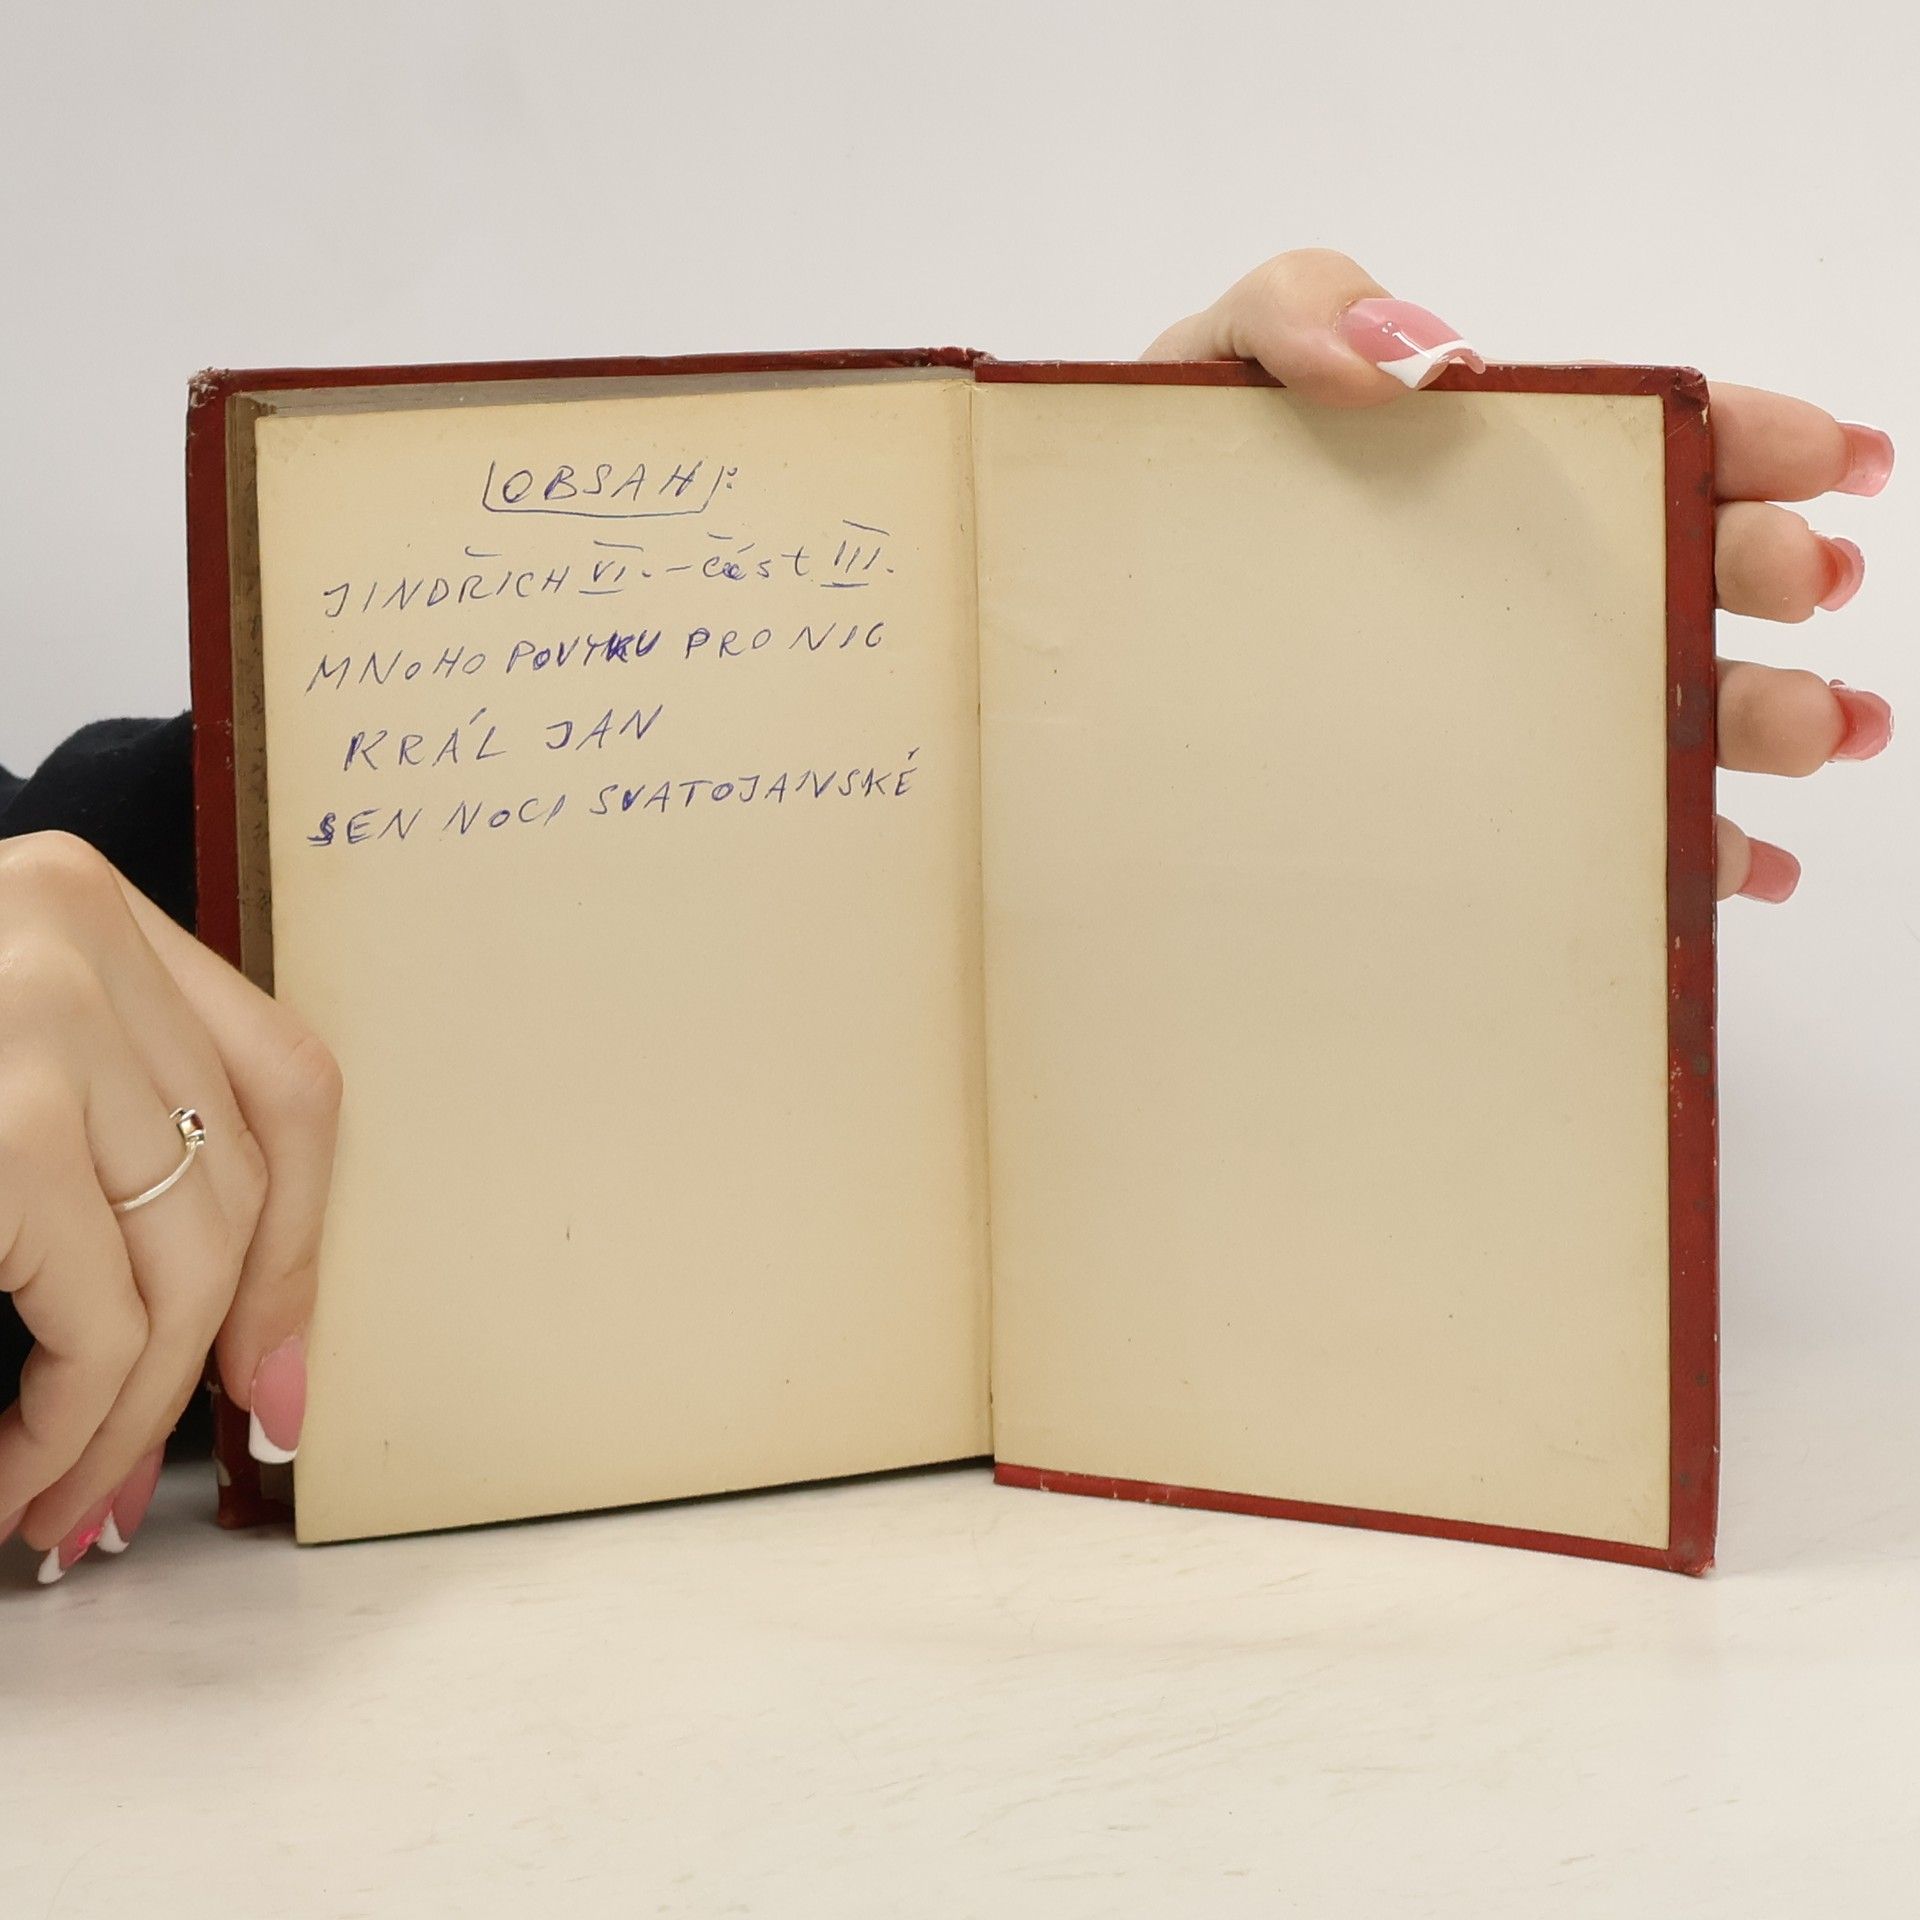 OBSAH:
JINDŘICH VI. - část III.
MNOHO POVYKU PRO NIC
KRÁL JAN
SEN NOCI SVATOJANSKÉ